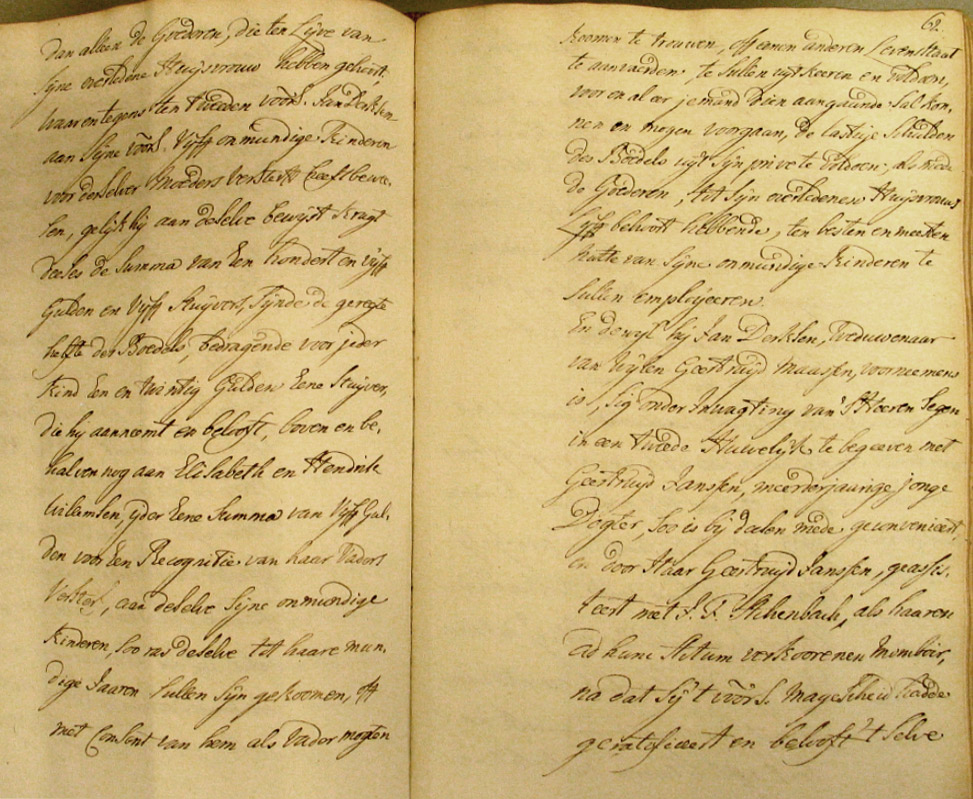 dan alleen de Goederen, die ten Lijve van
sijne overledene Huijsvrouw hebben gehoort,
waarentegens ten tweeden voors. Jan Derksen
aan sijne voors. Vijff onmundige Kinderen
voor derselver moeders versterff heeft bewe-
sen, gelijk hij aan deselve bewijst kragt
deeses de Summa van Een hondert en vijff
Gulden en Vijff Stuijvers, sijnde de geregte
helfte des Boedels, bedragende voor jeder
Kind Een en twintig Gulden Eene Stuijver,
die hij aanneemt en belooft, boven en be-
halven nog aan Elisabeth en Hendrik
Willemsen, ijder Eene Summa van Vijff Gul-
den voor Een Recognitie van haar Vaders
Versterf, aan deselve sijne onmundige
Kinderen, soo ras deselve tot haare mun-
dige Jaaren sullen sijn gekoomen, off
met Consent van hem als Vader mogten
62.
koomen te trouwen, off eenen anderen Levenstaat
te aanvaerden, te sullen uijtkeeren en voldoen,
voor en al eer jemand dien aangaende sal kon-
nen en mogen voorgaan, de lastige schulden
des Boedels uijt sijn privé te voldoen, als mede
de Goederen, tot sijn overledenen Huijsvrouws
Lijff behoort hebbende, ten besten en meesten
nutte van sijne onmundige Kinderen te
sullen emploijeeren.
En dewijl hij Jan Derksen, Weduwenaar
van wijlen Geertruijd Maassen, voorneemens
is, sig onder Inwagting van 's Heeren Segen
in een twede Huwelijk te begeeven met
Geertruijd Janssen, meerderjaarige jonge
Dogter, soo is bij deesen mede geconvenieert,
en door Haar Geertruijd Janssen, geassis-
teert met J. F. Achenbach, als haaren
ad hunc Actum verkoorenen Momboir,
na dat sij 't voors. Magescheid hadde
geratificeert en belooft 't selve